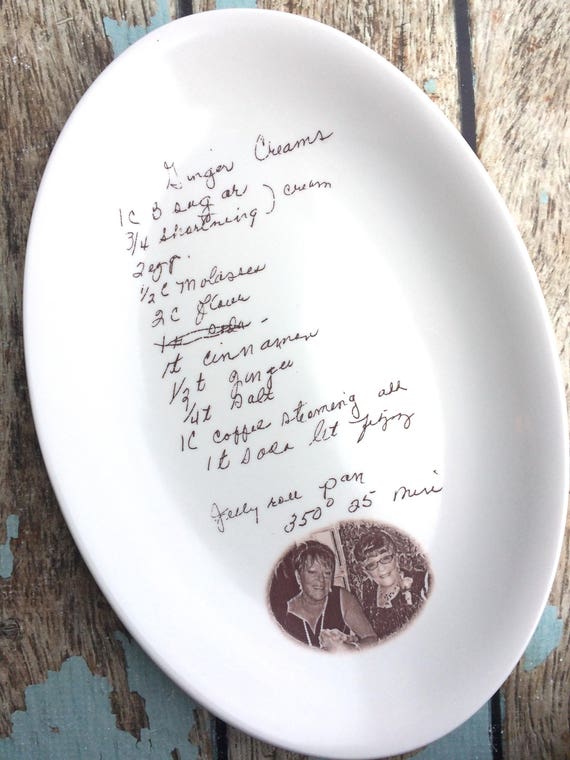 Ginger Creams
1C B sugar
3/4 shortening } cream
2 egg.
1/2 C Molasses
2C flour
1t soda -
1t cinnamon
1/2 t ginger
1/4t Salt
1C coffee steaming
1t Soda let
Jelly roll pan
350° 25 min